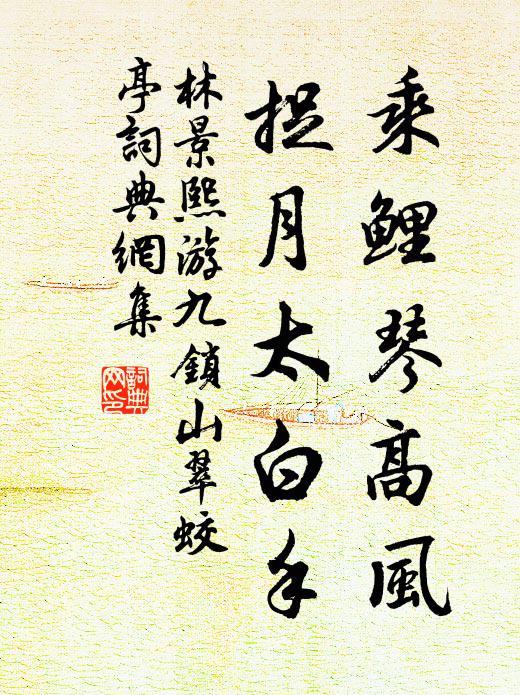 乘鯉琴高風
捉月太白手
林景熙游九鎖山翠蛟
亭詞典網集
詞典
网印